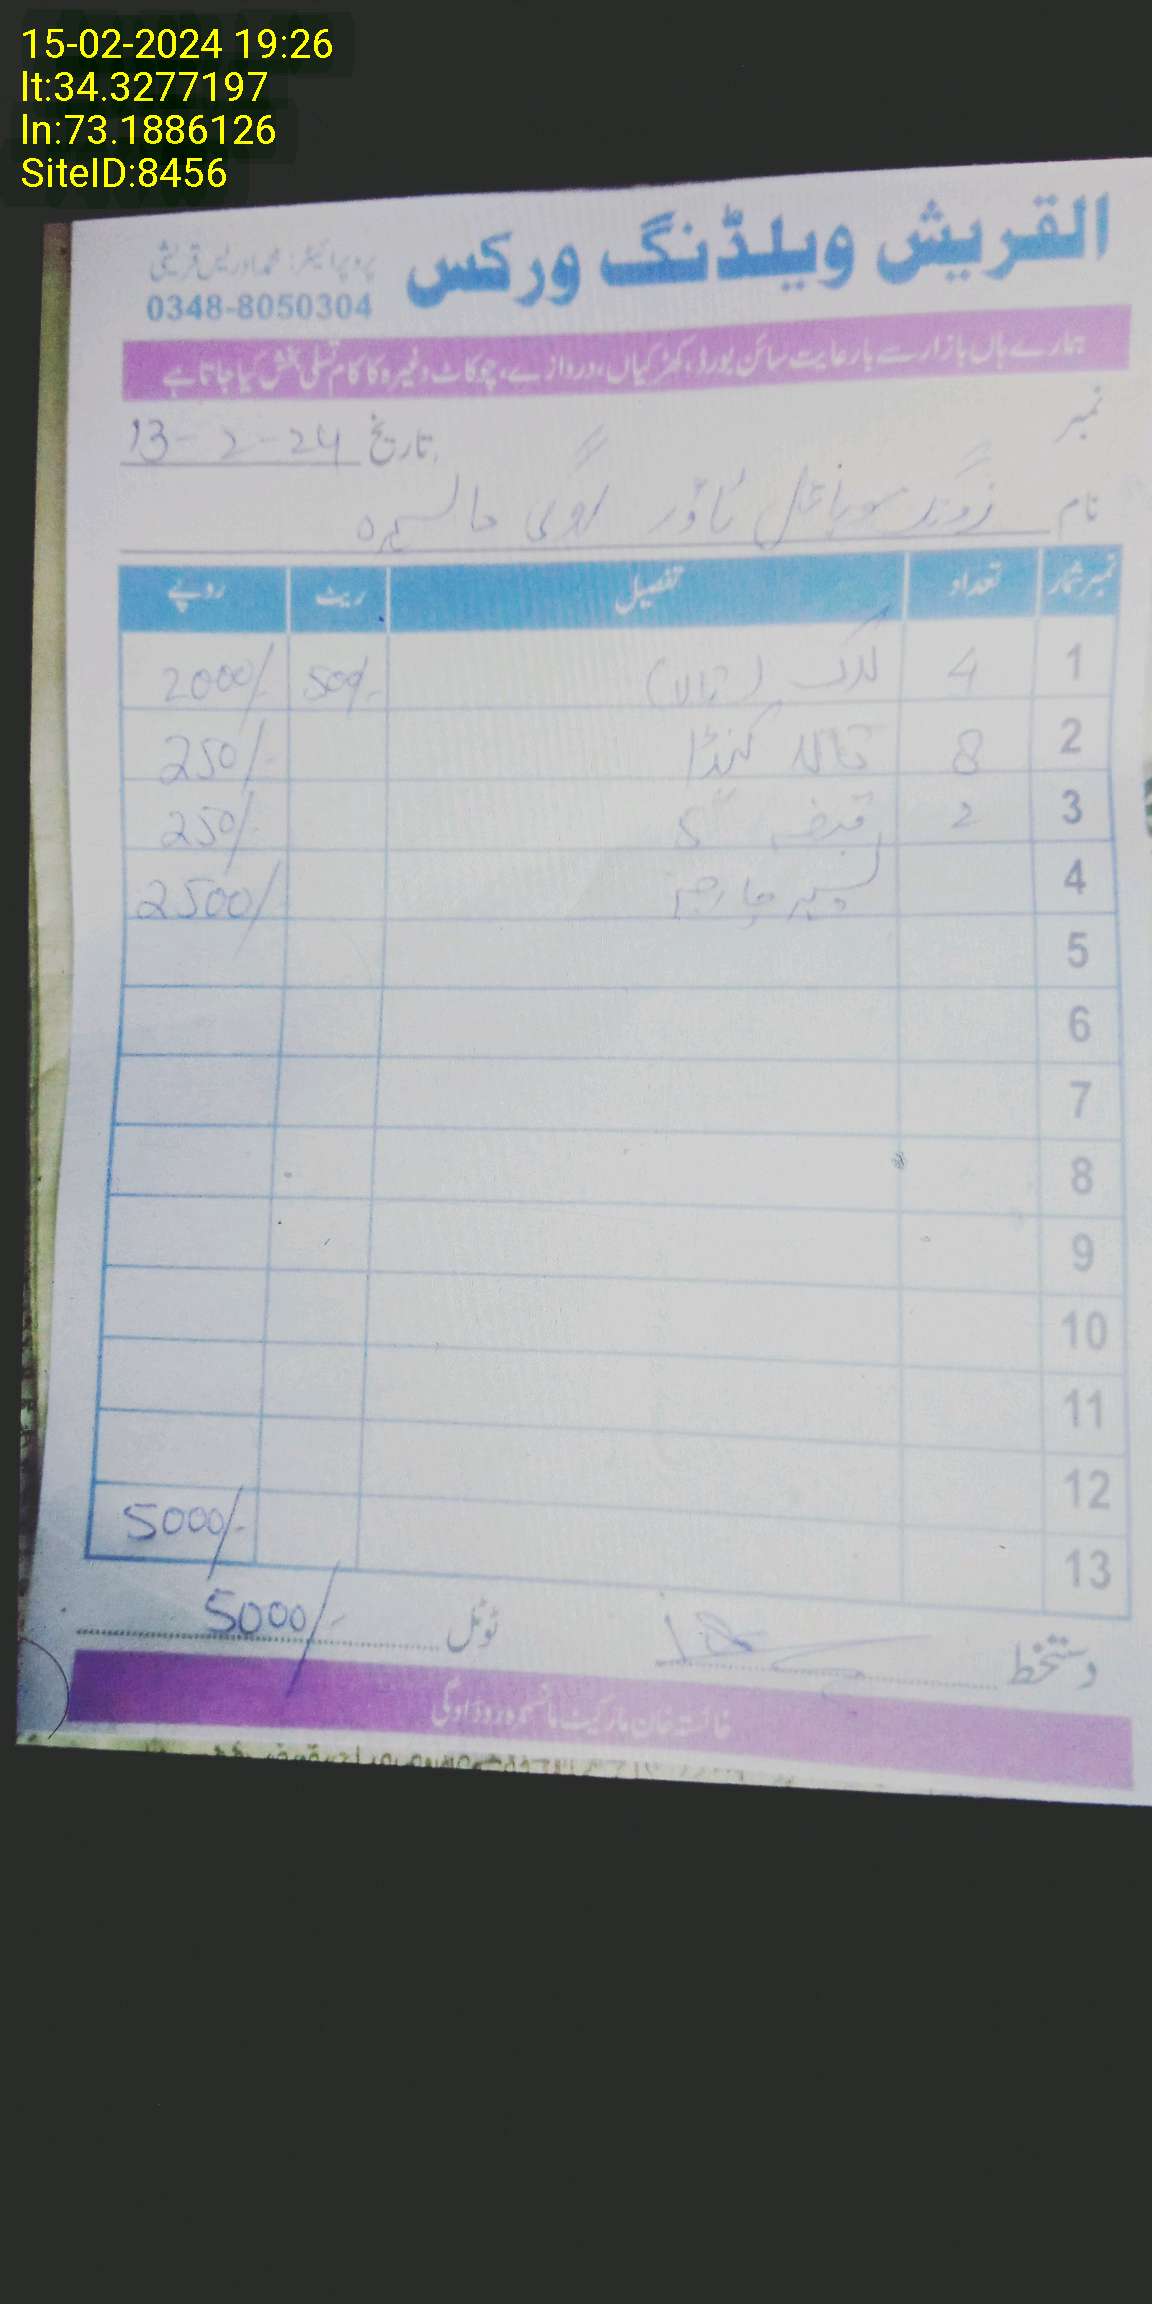 15-02-2024 19:26
lt:34.3277197
ln:73.1886126
SiteID:8456
القریش ویلڈنگ ورکس
پروپرائیٹر: محمد ادریس قریشی
0348-8050304
ہمارے ہاں بازار سے بارعایت سائن بورڈ، کھڑکیاں، دروازے، چوکاٹ وغیرہ کا کام تسلی بخش کیا جاتا ہے
نمبر
تاریخ 13-2-24
نام زونگ موبائل ٹاور اوگی مانسہرہ
نمبر شمار تعداد تفصیل ریٹ روپے
1 4 لاک (تالا) 500/- 2000/-
2 8 تالا کنڈا 250/-
3 2 قبضہ 5" 250/-
4 لیبر چارجز 2500/-
5
6
7
8
9
10
11
12
13 5000/-
ٹوٹل 5000/-
دستخط
خان مارکیٹ مانسہرہ روڈ اوگی